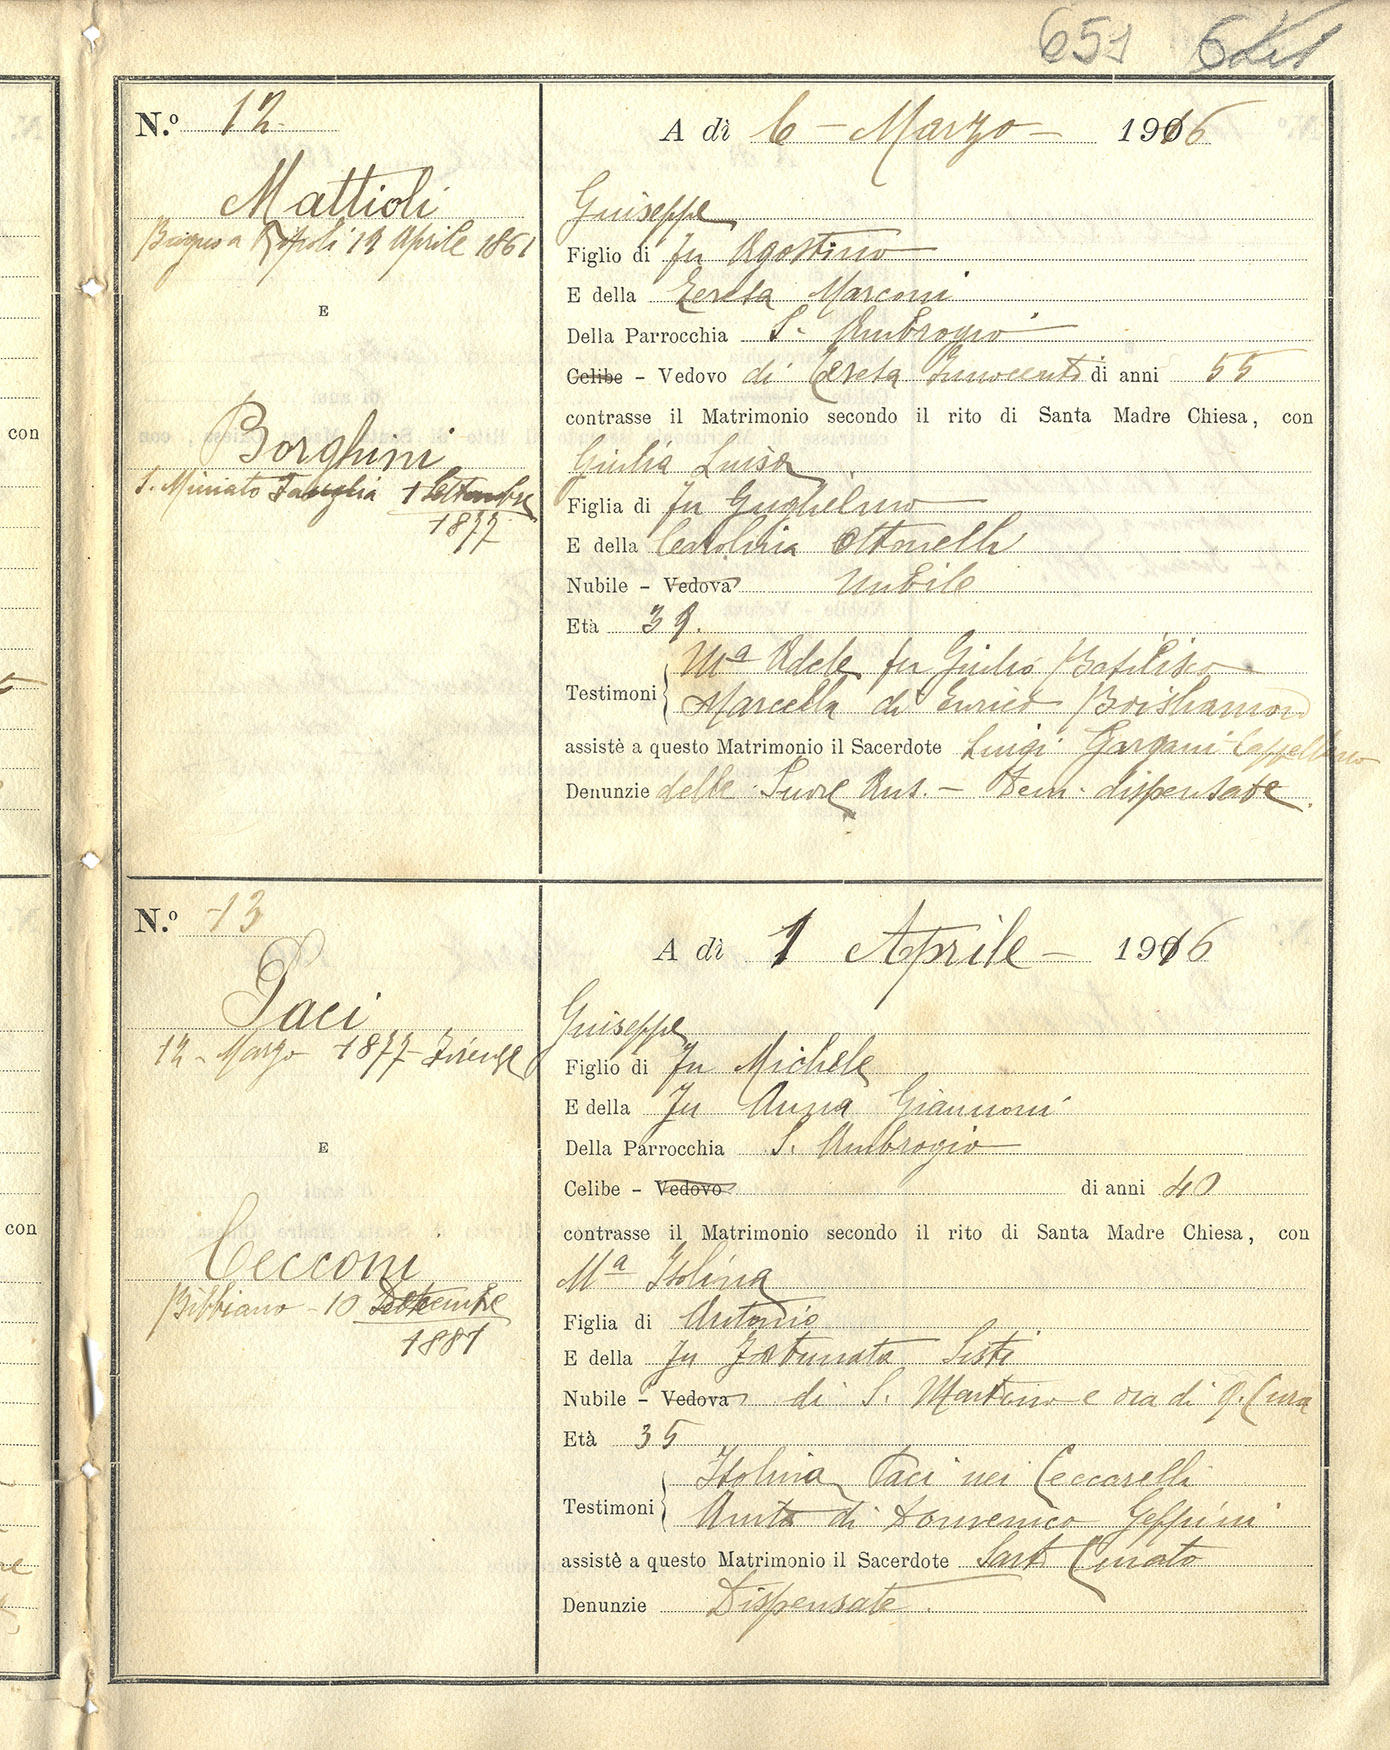 651
N.º 12
Mattioli
Bagno a Ripoli 12 Aprile 1861
E
Borghini
S. Miniato 1 Settembre
1877
A dì 6 - Marzo - 1916
Giuseppe
Figlio di fu Agostino
E della Teresa Marconi
Della Parrocchia S. Ambrogio
Celibe - Vedovo di Teresa Innocenti di anni 55
contrasse il Matrimonio secondo il rito di Santa Madre Chiesa, con
Giulia Luisa
Figlia di fu Guglielmo
E della Carolina Ottonelli
Nubile - Vedova Nubile
Età 39.
Testimoni Mª Adele fu Giulio
Marcella di Enrico
assistè a questo Matrimonio il Sacerdote Luigi Gargani Cappellano
Denunzie delle Suore - dispensate.
N.º 13
Paci
12 - Marzo 1877 - Firenze
E
Cecconi
Bibbiano - 10
1881
A dì 1 Aprile - 1916
Giuseppe
Figlio di fu Michele
E della fu Anna Giannoni
Della Parrocchia S. Ambrogio
Celibe - Vedovo di anni 40
contrasse il Matrimonio secondo il rito di Santa Madre Chiesa, con
Mª Isolina
Figlia di Antonio
E della fu Fortunata Sisti
Nubile - Vedova di S. Martino e ora di q. Cura
Età 35
Testimoni Isolina Paci nei Ceccarelli
Anita di Domenico Geppini
assistè a questo Matrimonio il Sacerdote Sarti Curato
Denunzie Dispensate.
con
con